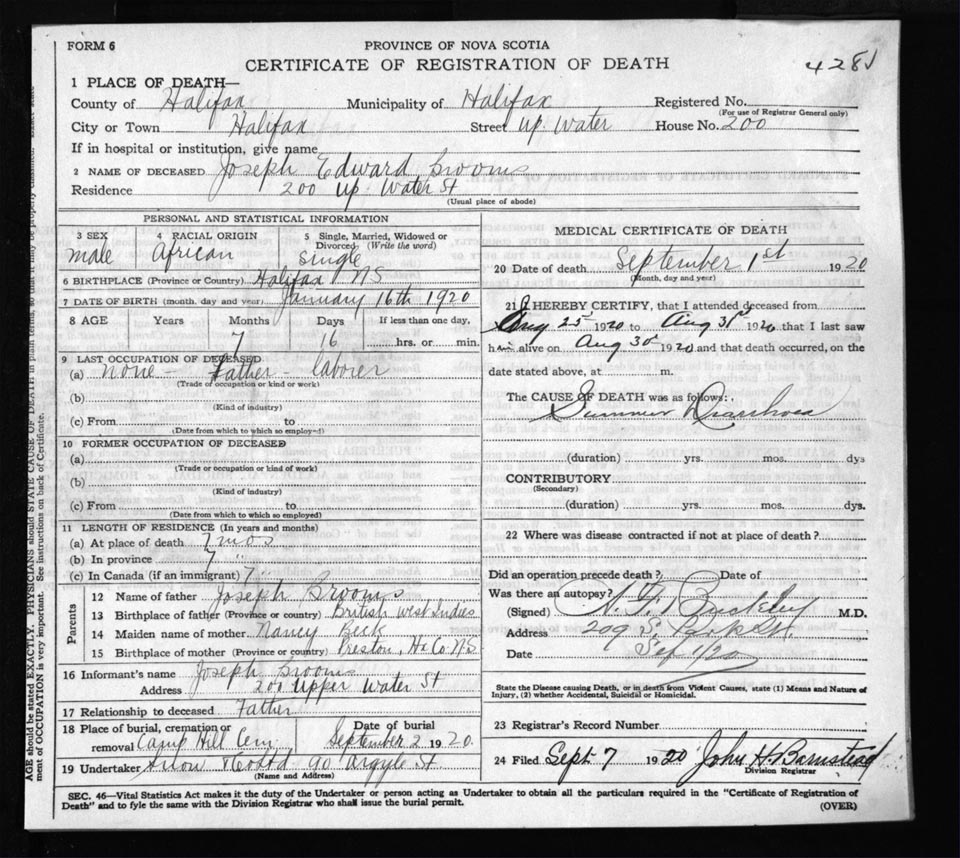 FORM 6
PROVINCE OF NOVA SCOTIA
CERTIFICATE OF REGISTRATION OF DEATH
1 PLACE OF DEATH—
County of Halifax Municipality of Halifax Registered No.
(For use of Registrar General only)
City or Town Halifax Street up. Water House No. 200
If in hospital or institution, give name
2 NAME OF DECEASED Joseph Edward Brooms
Residence 200 up. Water St
(Usual place of abode)
PERSONAL AND STATISTICAL INFORMATION
3 SEX male
4 RACIAL ORIGIN African
5 Single, Married, Widowed or Divorced (Write the word) Single
6 BIRTHPLACE (Province or Country) Halifax NS
7 DATE OF BIRTH (month, day and year) January 16th 1920
8 AGE Years Months Days If less than one day,
7 16 hrs. or min.
9 LAST OCCUPATION OF DECEASED
(a) none - Father - laborer
(Trade or occupation or kind or work)
(b)
(Kind of industry)
(c) From to
(Date from which to which so employed)
10 FORMER OCCUPATION OF DECEASED
(a)
(Trade or occupation or kind of work)
(b)
(Kind of industry)
(c) From to
(Date from which to which so employed)
11 LENGTH OF RESIDENCE (In years and months)
(a) At place of death 7 mos
(b) In province 7 "
(c) In Canada (if an immigrant) 7 "
Parents
12 Name of father Joseph Brooms
13 Birthplace of father (Province or country) British West Indies
14 Maiden name of mother Nancy Beck
15 Birthplace of mother (Province or country) Preston, Hx Co NS
16 Informant's name Joseph Brooms
Address 200 Upper Water St
17 Relationship to deceased Father
18 Place of burial, cremation or removal Camp Hill Cem Date of burial September 2 1920.
19 Undertaker 90 Argyle St
(Name and Address)
MEDICAL CERTIFICATE OF DEATH
20 Date of death September 1st 1920
(Month, day and year)
21 I HEREBY CERTIFY, that I attended deceased from
Aug 25 1920 to Aug 31st 1920 that I last saw
him alive on Aug 30 1920 and that death occurred, on the
date stated above, at m.
The CAUSE OF DEATH was as follows:
Summer Diarrhoea
(duration) yrs. mos. dys
CONTRIBUTORY
(Secondary)
(duration) yrs. mos. dys.
22 Where was disease contracted if not at place of death?
Did an operation precede death? Date of
Was there an autopsy?
(Signed) M.D.
Address 209 S. Park St.
Date Sep 1/20
State the Disease causing Death, or in death from Violent Causes, state (1) Means and Nature of
Injury, (2) whether Accidental, Suicidal or Homicidal.
23 Registrar's Record Number
24 Filed Sept 7 1920 John H. Barnstead
Division Registrar
SEC. 46—Vital Statistics Act makes it the duty of the Undertaker or person acting as Undertaker to obtain all the particulars required in the "Certificate of Registration of
Death" and to fyle the same with the Division Registrar who shall issue the burial permit.
(OVER)
AGE should be stated EXACTLY. PHYSICIANS should STATE CAUSE OF DEATH in plain terms, so that it may be properly classified.
ment of OCCUPATION is very important. See instructions on back of Certificate.